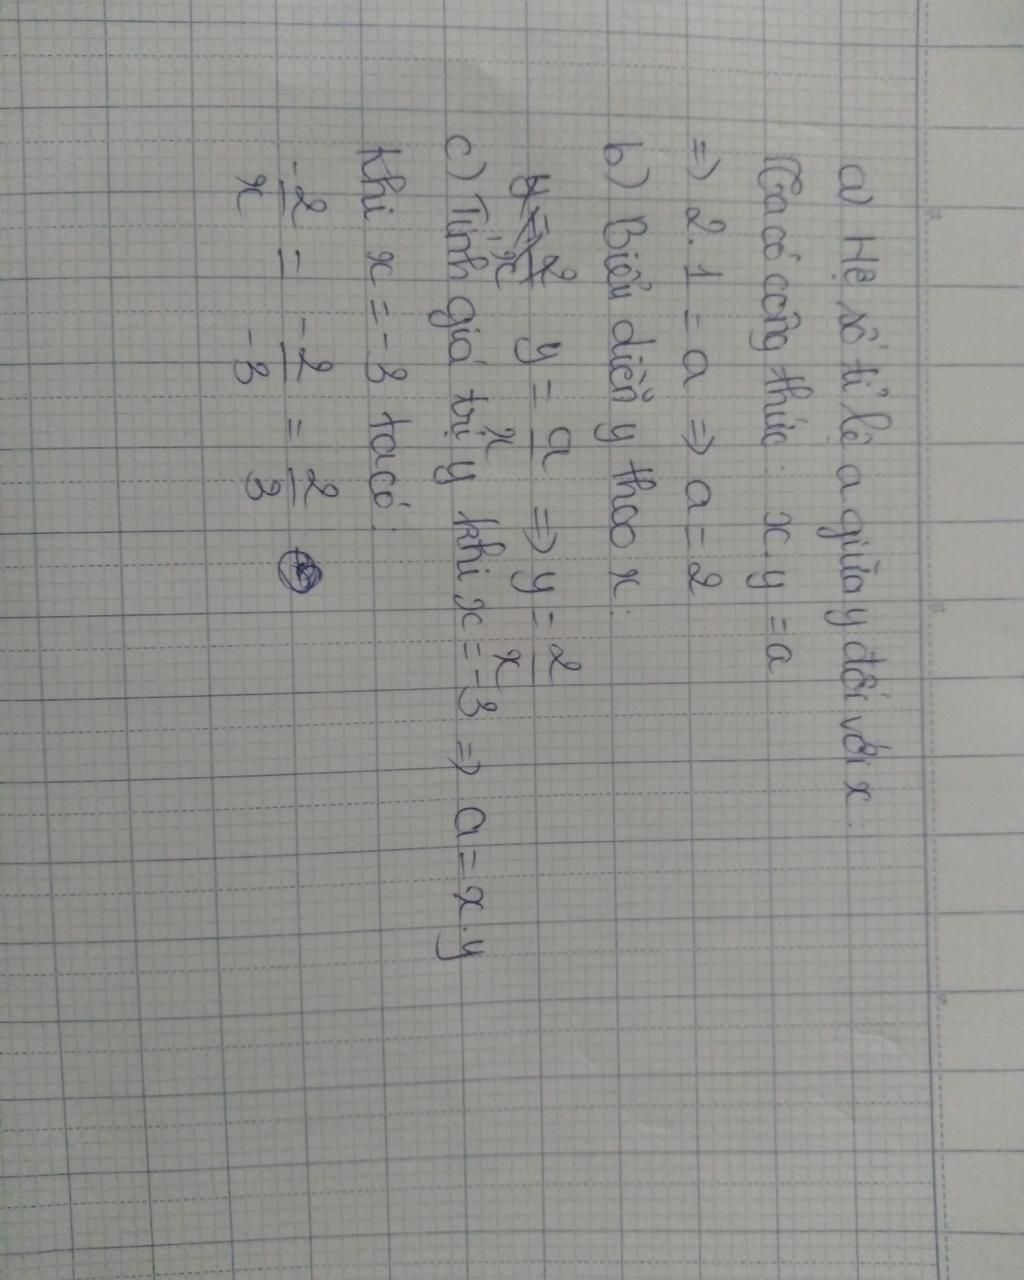 a) Hệ số tỉ lệ a giữa y đối với x:
Ta có công thức: x.y = a
=> 2.1 = a => a = 2
b) Biểu diễn y theo x:
y = a/x => y = 2/x
c) Tính giá trị y khi x = -3 => a = x.y
Khi x = -3 ta có:
-2/x = -2/-3 = 2/3